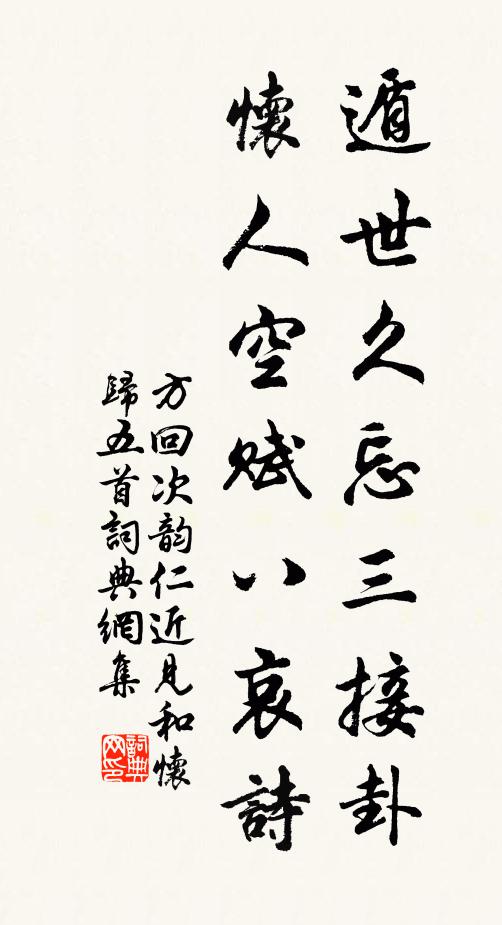 遁世久忘三接卦
懷人空賦八哀詩
方回次韵仁近見和懷
歸五首詞典網集
詞典網印